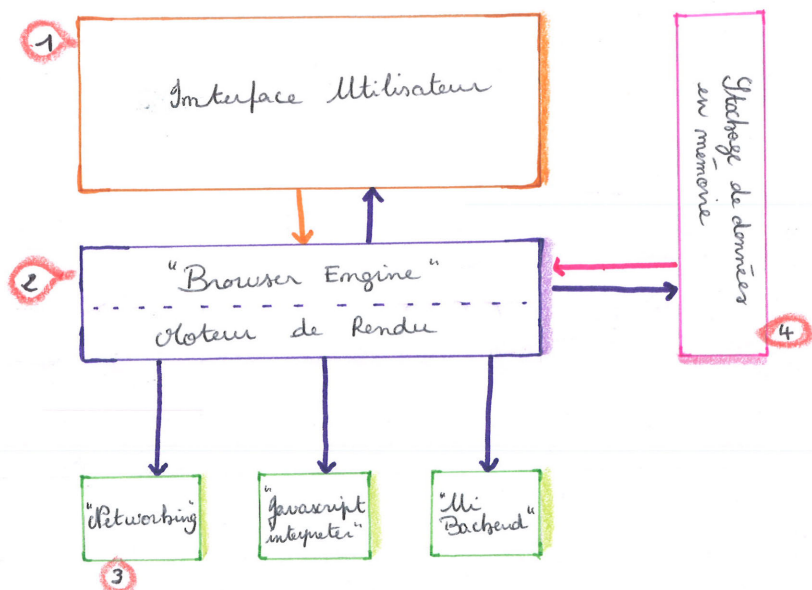 1
Interface Utilisateur
2
"Browser Engine"
Moteur de Rendu
Stockage de données
en mémoire
4
"Networking"
3
"Javascript
interpreter"
"Ui
Backend"